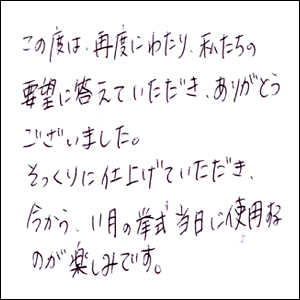 この度は、再度にわたり、私たちの
要望に答えていただき、ありがとう
ございました。
そっくりに仕上げていただき、
今から、11月の挙式当日に使用する
のが楽しみです。